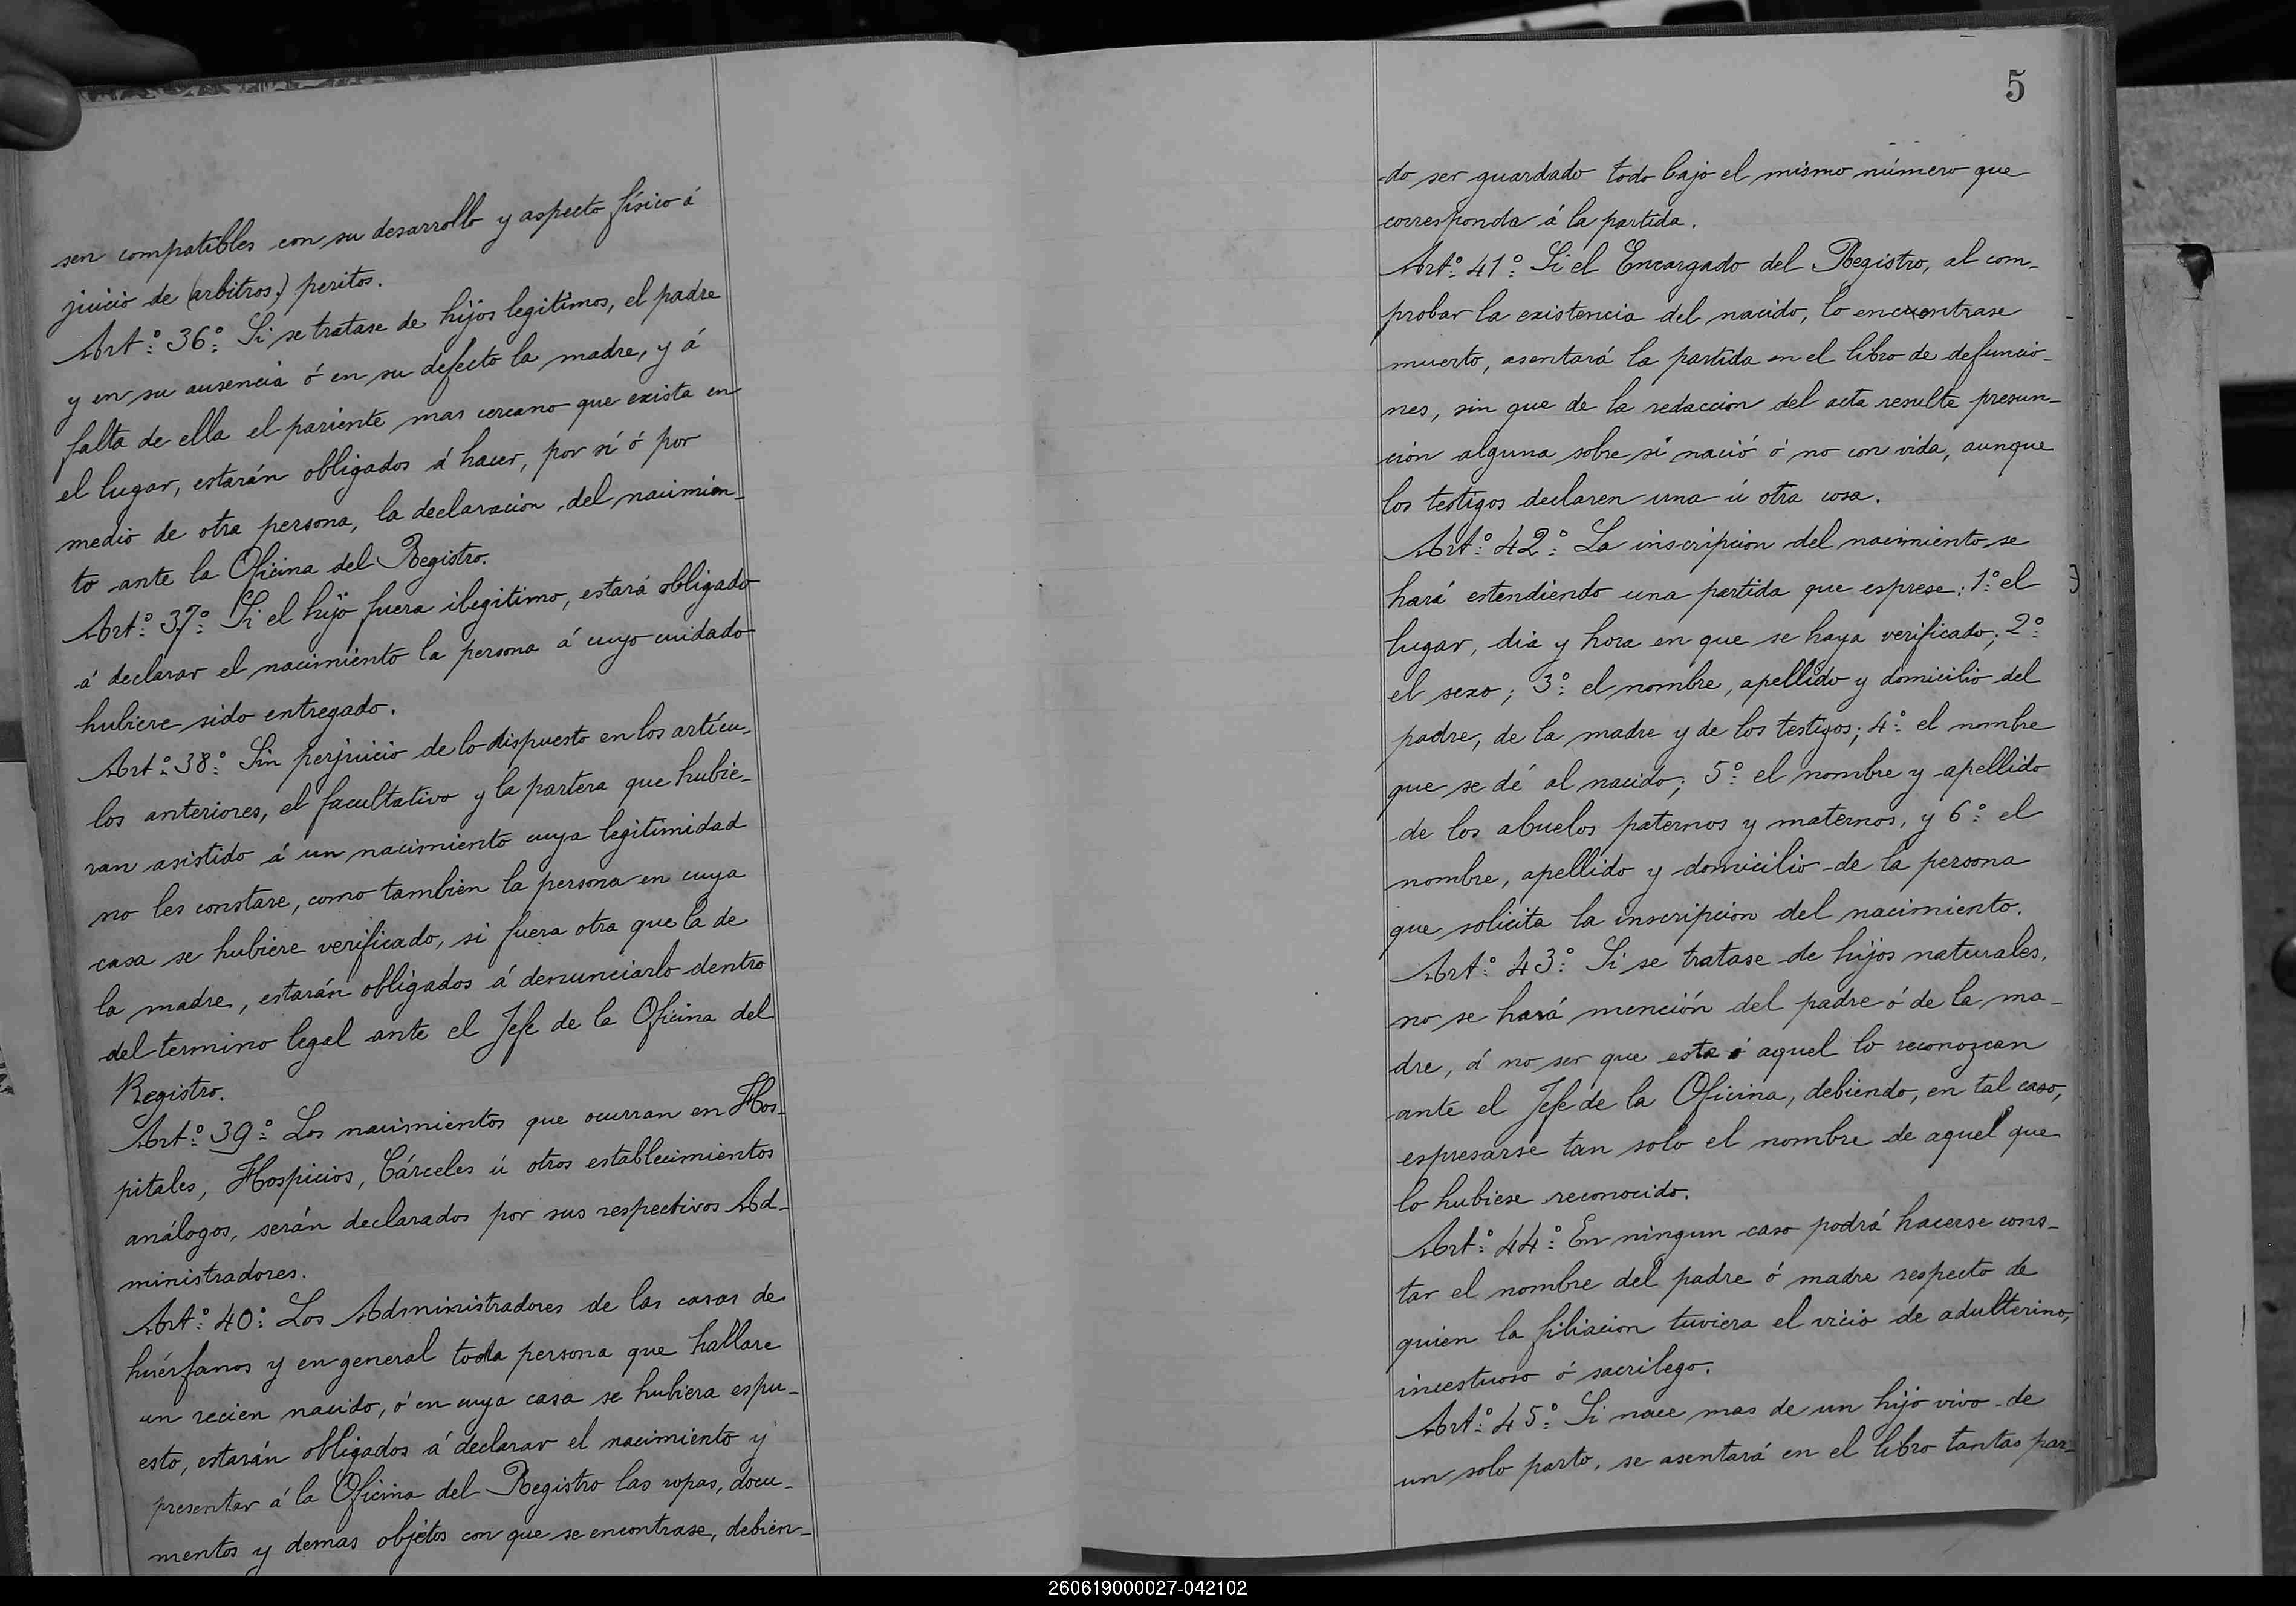 sen compatibles con su desarrollo y aspecto físico á
juicio de (arbitros) peritos.
Artº 36º Si se tratase de hijos legitimos, el padre
y en su ausencia ó en su defecto la madre, y á
falta de ella el pariente mas cercano que exista en
el lugar, estarán obligados á hacer, por sí ó por
medio de otra persona, la declaracion del nacimien-
to ante la Oficina del Registro.
Artº 37º Si el hijo fuera ilegitimo, estará obligado
á declarar el nacimiento la persona á cuyo cuidado
hubiere sido entregado.
Artº 38º Sin perjuicio de lo dispuesto en los artícu-
los anteriores, el facultativo y la partera que hubie-
ran asistido á un nacimiento cuya legitimidad
no les constare, como tambien la persona en cuya
casa se hubiere verificado, si fuera otra que la de
la madre, estarán obligados á denunciarlo dentro
del termino legal ante el Jefe de la Oficina del
Registro.
Artº 39º Los nacimientos que ocurran en Hos-
pitales, Hospicios, Cárceles ú otros establecimientos
análogos, serán declarados por sus respectivos Ad-
ministradores.
Artº 40º Los Administradores de las casas de
huérfanos y en general toda persona que hallare
un recien nacido, ó en cuya casa se hubiera espu-
esto, estarán obligados á declarar el nacimiento y
presentar á la Oficina del Registro las ropas, docu-
mentos y demas objetos con que se encontrase, debien-
5
do ser guardado todo bajo el mismo número que
corresponda á la partida.
Artº 41º Si el Encargado del Registro, al com-
probar la existencia del nacido, lo encuentrase
muerto, asentará la partida en el libro de defuncio-
nes, sin que de la redaccion del acta resulte presun-
cion alguna sobre si nació ó no con vida, aunque
los testigos declaren una ú otra cosa.
Artº 42º La inscripcion del nacimiento se
hará estendiendo una partida que esprese: 1º el
lugar, dia y hora en que se haya verificado; 2º
el sexo; 3º el nombre, apellido y domicilio del
padre, de la madre y de los testigos; 4º el nombre
que se dé al nacido; 5º el nombre y apellido
de los abuelos paternos y maternos, y 6º el
nombre, apellido y domicilio de la persona
que solicita la inscripcion del nacimiento.
Artº 43º Si se tratase de hijos naturales,
no se hará mención del padre ó de la ma-
dre, á no ser que esta ó aquel lo reconozcan
ante el Jefe de la Oficina, debiendo, en tal caso,
espresarse tan solo el nombre de aquel que
lo hubiese reconocido.
Artº 44º En ningun caso podrá hacerse cons-
tar el nombre del padre ó madre respecto de
quien la filiacion tuviera el vicio de adulterino,
incestuoso ó sacrilego.
Artº 45º Si nace mas de un hijo vivo de
un solo parto, se asentará en el libro tantas par-
260619000027-042102